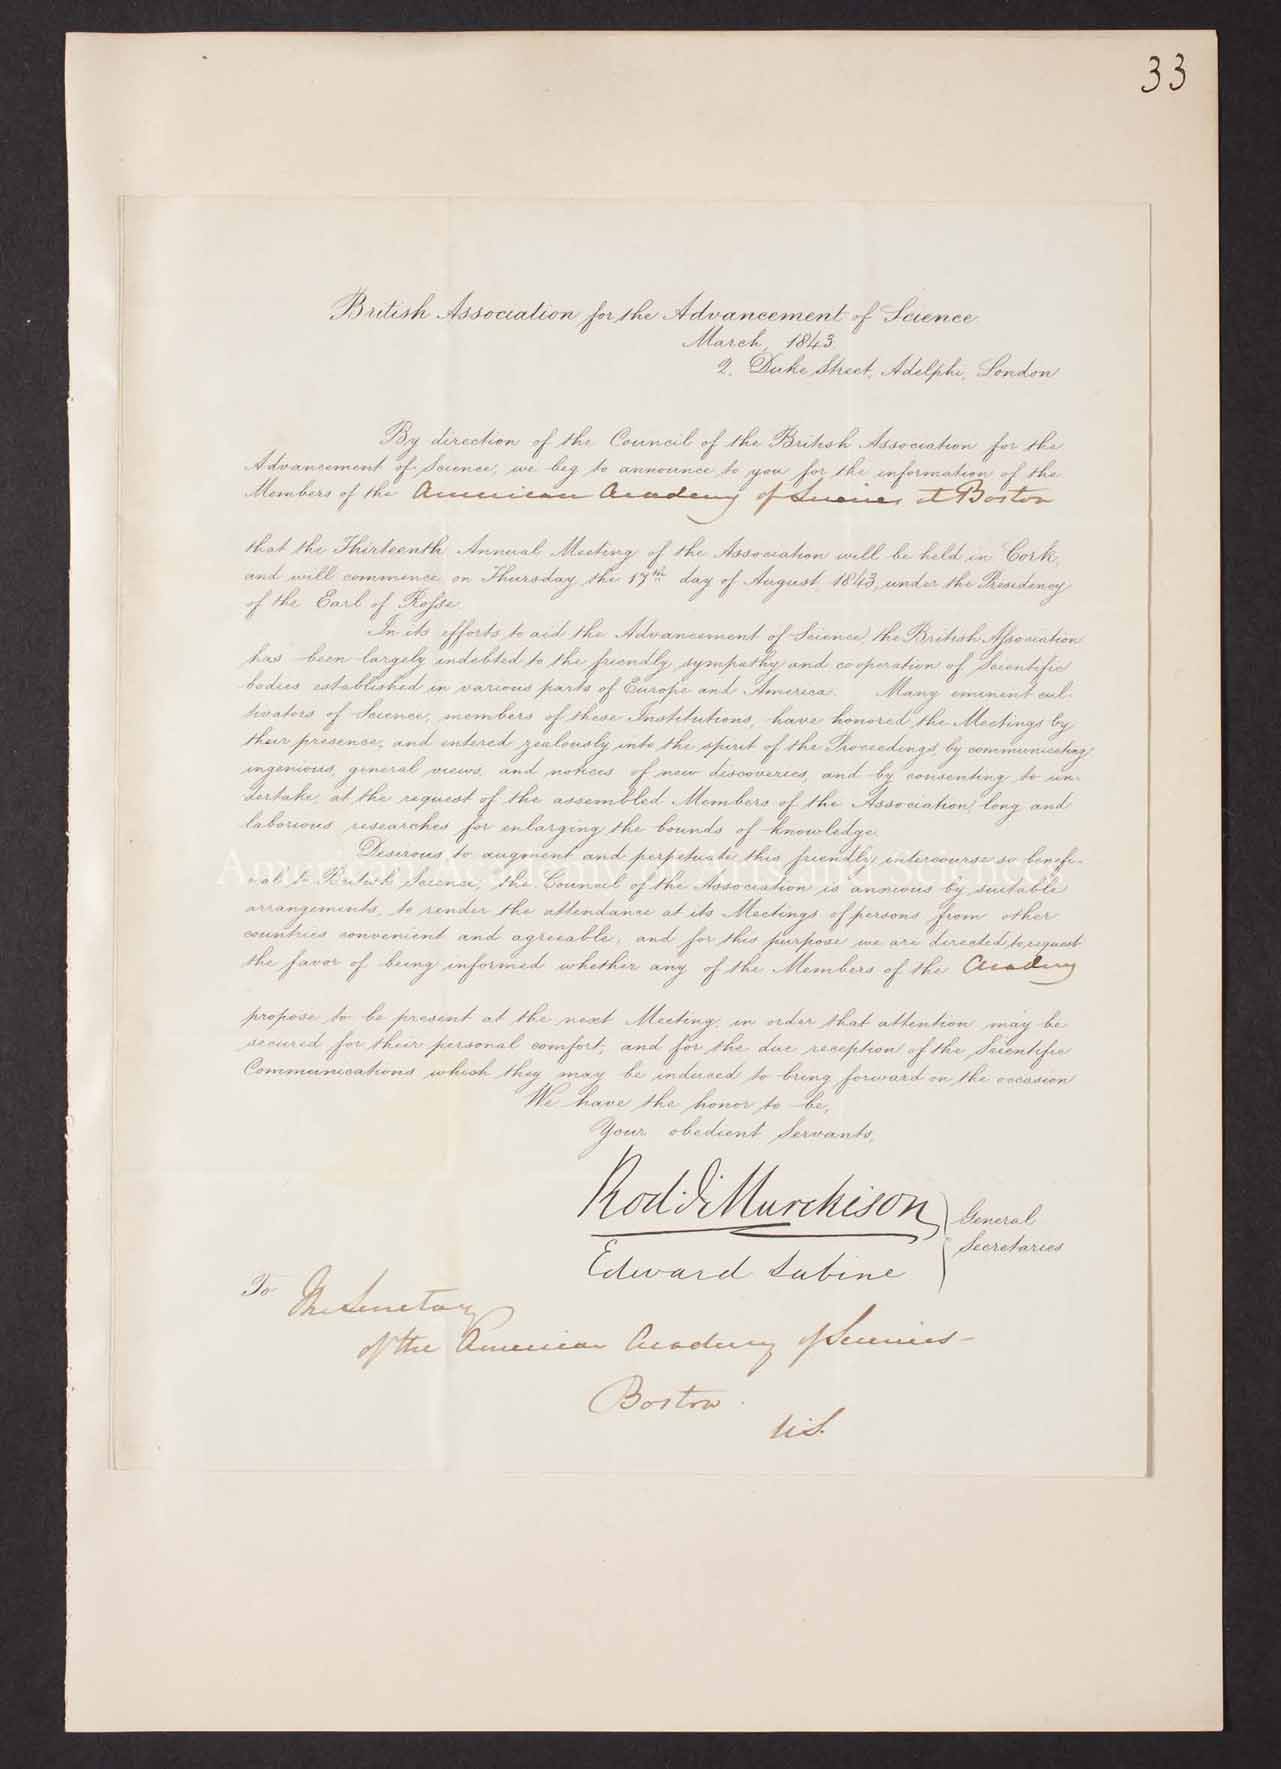 33
British Association for the Advancement of Science
March, 1843
2. Duke Street, Adelphi, London
By direction of the Council of the British Association for the
Advancement of Science, we beg to announce to you for the information of the
Members of the American Academy of Sciences at Boston
that the Thirteenth Annual Meeting of the Association will be held in Cork,
and will commence on Thursday the 17th day of August, 1843, under the Presidency
of the Earl of Rosse.
In its efforts to aid the Advancement of Science, the British Association
has been largely indebted to the friendly sympathy and cooperation of Scientific
bodies established in various parts of Europe and America. Many eminent cul-
tivators of Science, members of these Institutions, have honored the Meetings by
their presence, and entered zealously into the spirit of the Proceedings, by communicating
ingenious general views, and notices of new discoveries, and by consenting to un-
dertake, at the request of the assembled Members of the Association, long and
laborious researches for enlarging the bounds of knowledge.
Desirous to augment and perpetuate this friendly intercourse so benefi-
cial to British Science, the Council of the Association is anxious by suitable
American Academy of Arts and Sciences
arrangements, to render the attendance at its Meetings of persons from other
countries convenient and agreeable; and for this purpose we are directed to request
the favor of being informed whether any of the Members of the Academy
propose to be present at the next Meeting, in order that attention may be
secured for their personal comfort; and for the due reception of the Scientific
Communications which they may be induced to bring forward on the occasion
We have the honor to be,
Your obedient Servants,
Rod. I. Murchison
General
Secretaries
Edward Sabine
To The Secretary
of the American Academy of Sciences—
Boston.
U.S.